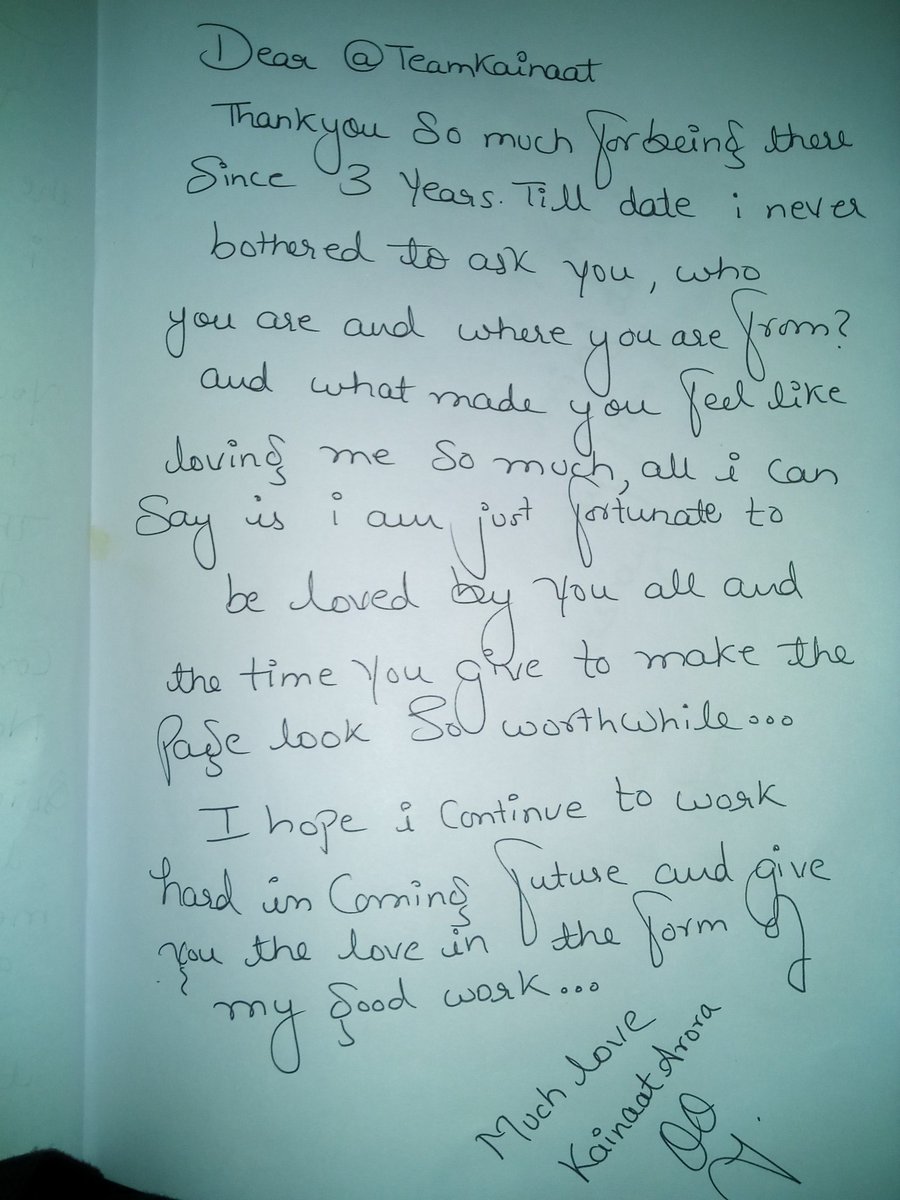 Dear @TeamKainaat
Thankyou So much for being there
Since 3 Years. Till date i never
bothered to ask you, who
you are and where you are from?
and what made you feel like
loving me so much, all i can
Say is i am just fortunate to
be loved by you all and
the time you give to make the
Page look So worthwhile...
I hope i continue to work
hard in Coming future and give
you the love in the form of
my good work...
Much love
Kainaat Arora